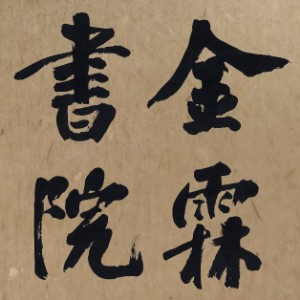 金霖
書院